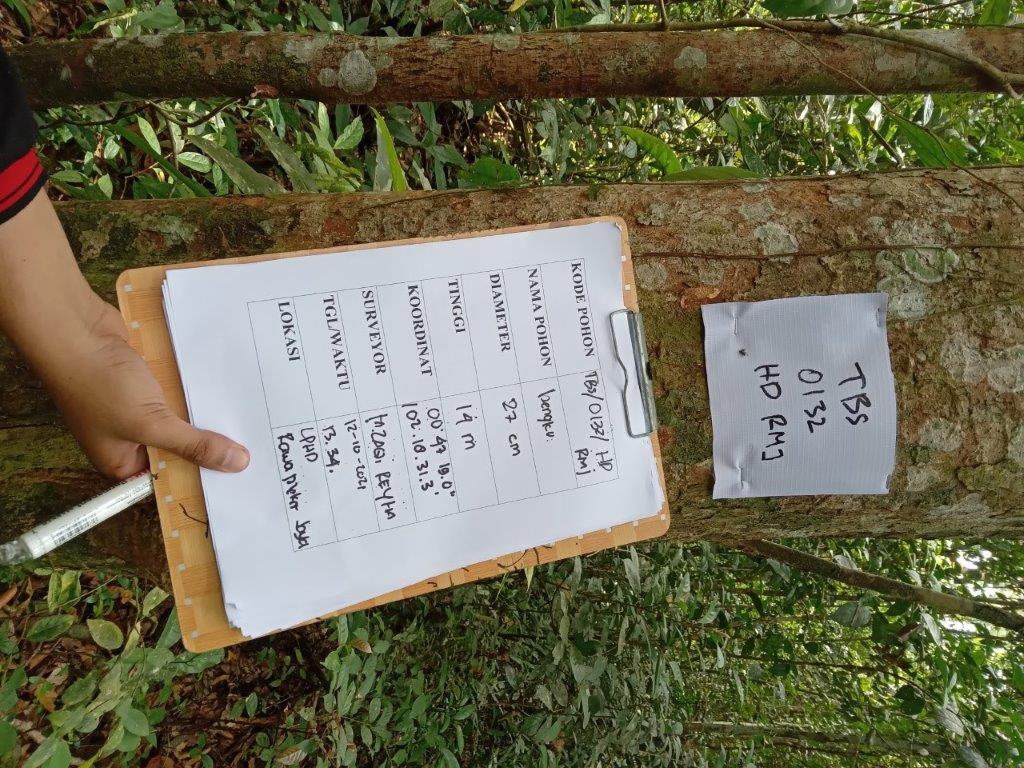 TBS
0132
HD RMJ
KODE POHON TBS/0132/ HD
RMJ
NAMA POHON bengku.
DIAMETER 27 cm
TINGGI 14 m
KOORDINAT 00°47'19.0"
102.18.31.3"
SURVEYOR REYHA
TGL/WAKTU 12-10-2021
13.34.
LOKASI LPHD
Rawa Mekar Jaya